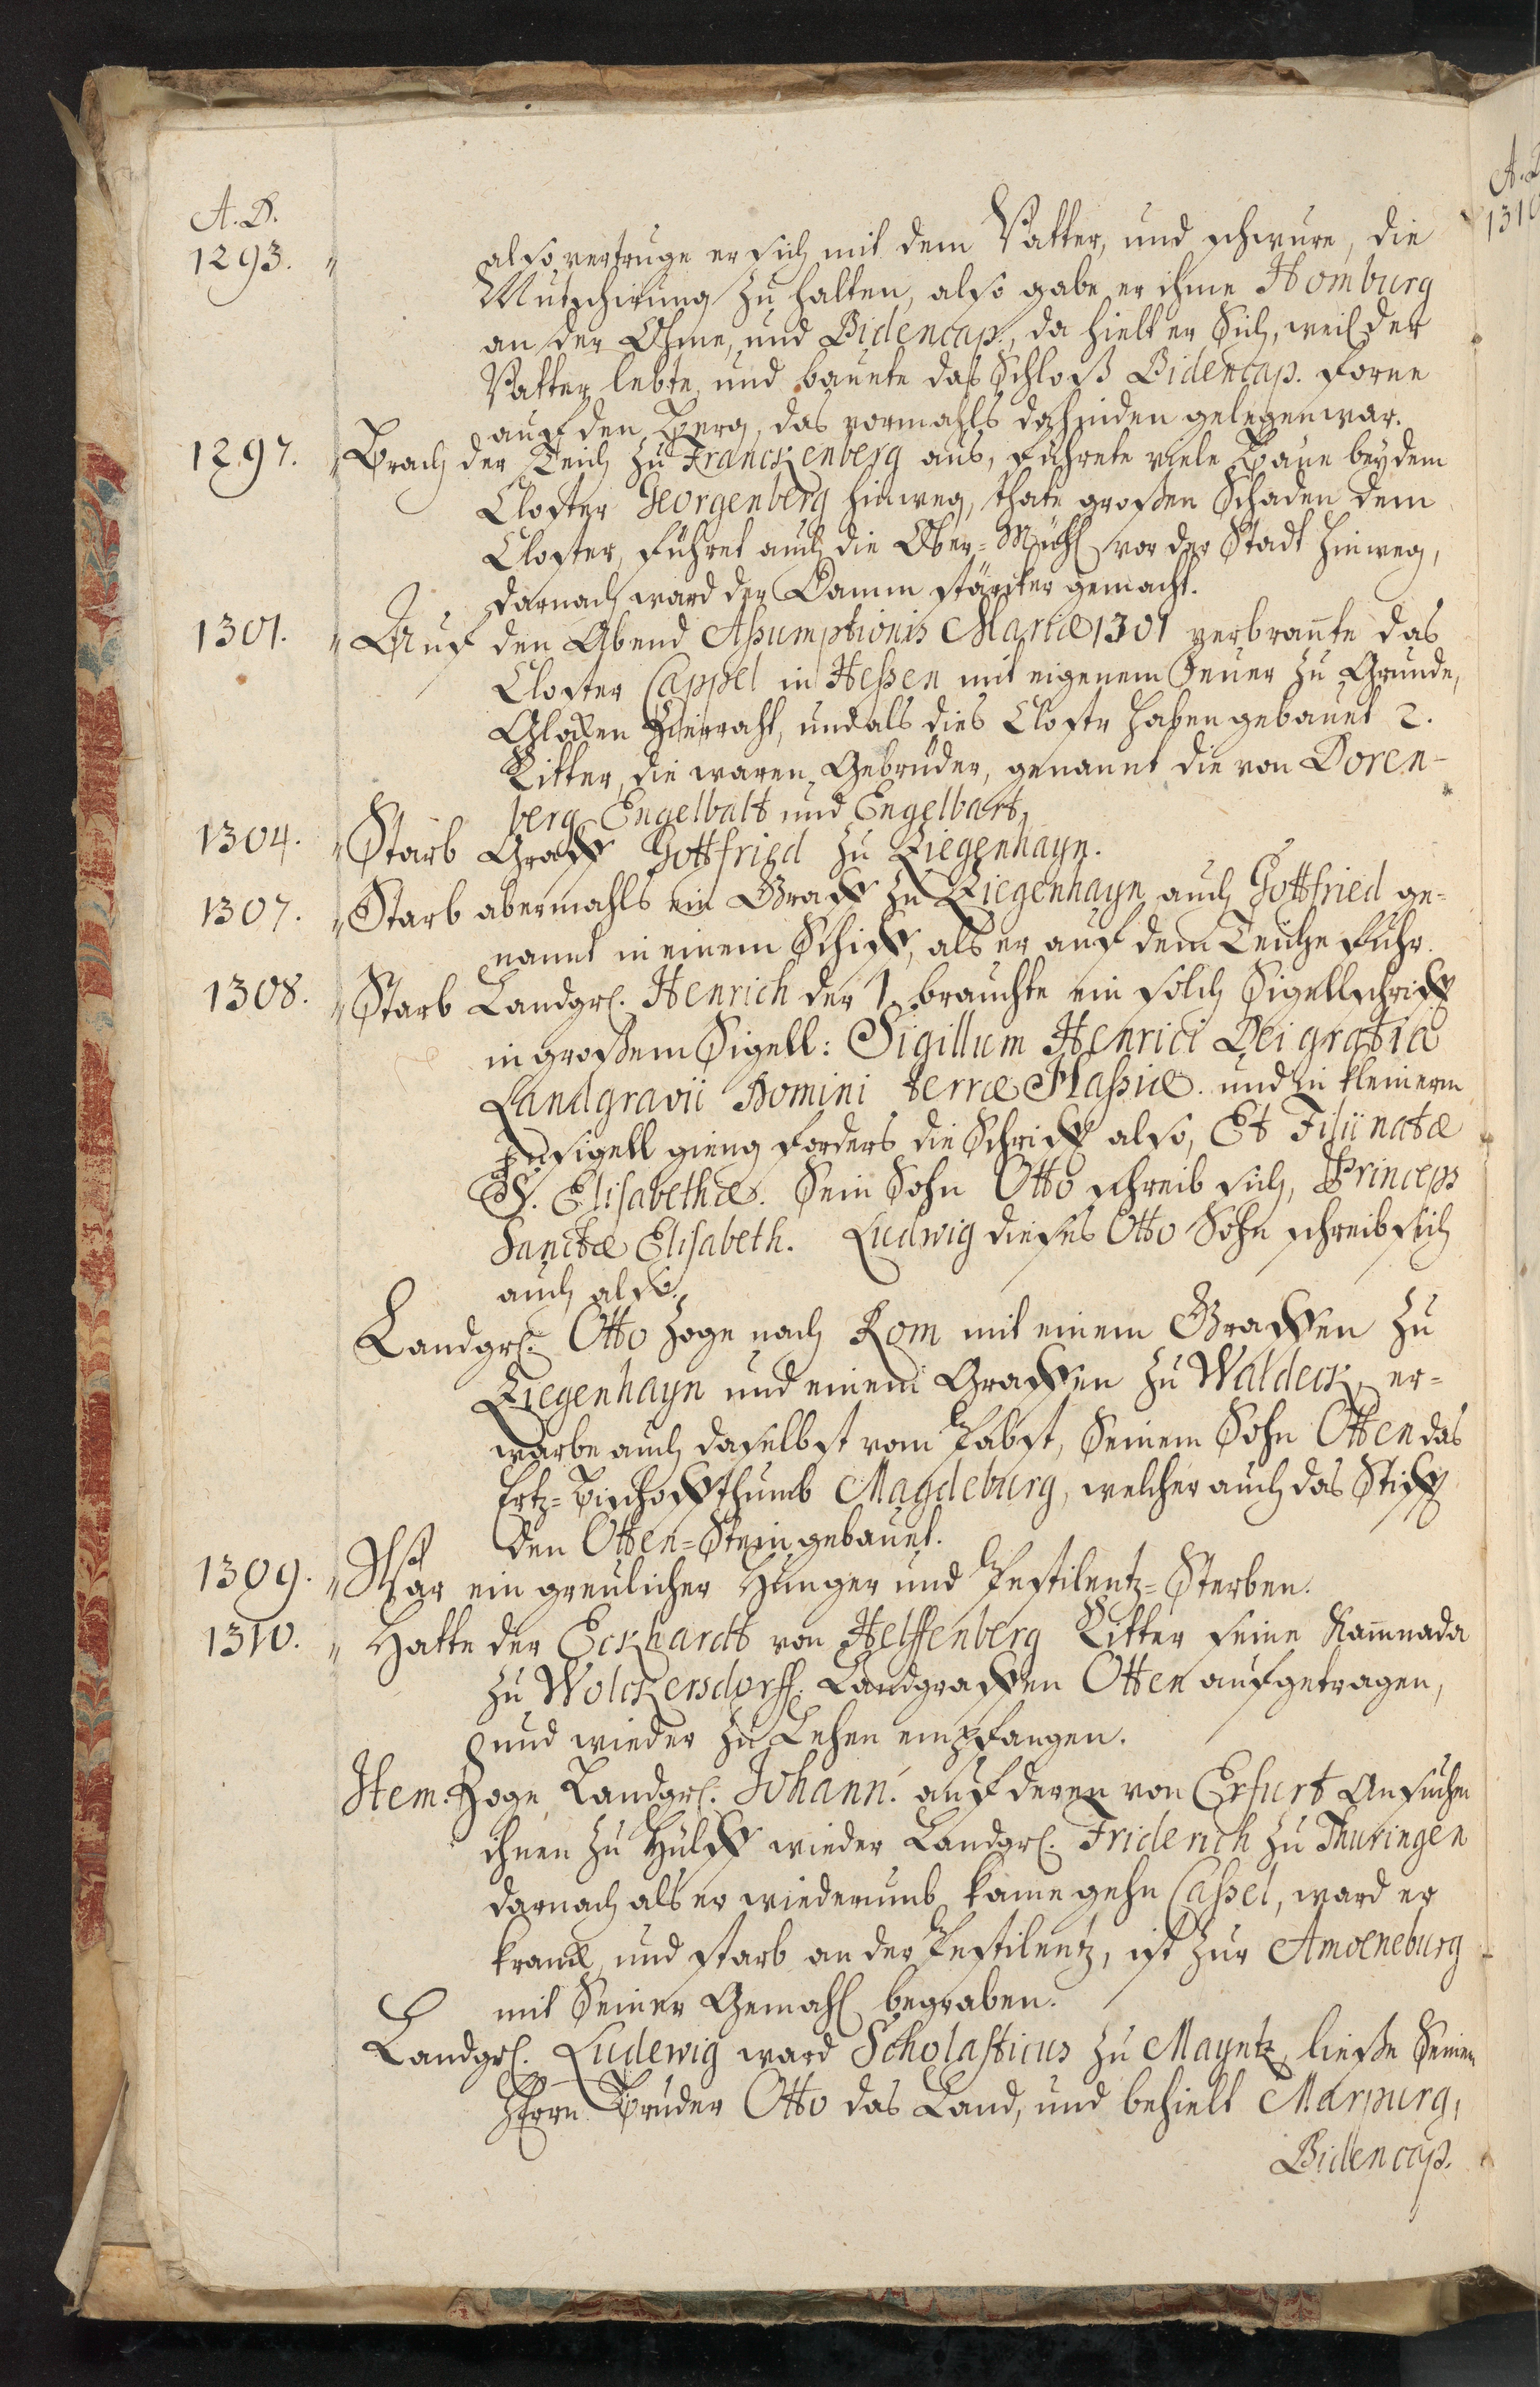 A. D.
1293. " also vertruge er sich mit dem Vatter, und schwure, die
Mutschirung zu halten, also gabe er ihme Homburg
an der Ohme, und Bidencap., da hielt er Sich, weil der
Vatter lebte, und bauete das Schloß Bidencap. forne
auf den Berg, das vormahls dahinden gelegen war.
1297. " Brach der Teich zu Franckenberg aus, führete viele Bäue bey dem
Closter Georgenberg hinweg, thate großen Schaden dem
Closter, führet auch die Ober-Mühl vor der Stadt hinweg,
darnach ward der Damm stärcker gemacht.
1301. " Auf den Abend Assumptionis Mariæ 1301 verbrante das
Closter Cappel in Hessen mit eigenem Feuer zu Grunde,
Glocken Zierraht, und als dies Closter haben gebauet 2.
Ritter, die waren Gebrüder, genannt die von Doren-
berg Engelbalt und Engelbart,
1304. " Starb Graff Gottfried zu Ziegenhayn.
1307. " Starb abermahls ein Graff zu Ziegenhayn auch Gottfried ge-
nannt in einem Schiff, als er auf dem Teiche fuhr.
1308. " Starb Landgr. Henrich der 1. brauchte ein solch Sigellschrifft
in großem Sigell: Sigillum Henrici Dei gratiæ
Landgravii Domini terræ Hassiæ. und in kleinerm
Insigell gieng forders die Schrifft also, Et Filii natæ
S. Elisabethæ. Sein Sohn Otto schreib sich, Princeps
Sanctæ Elisabeth. Ludwig dieses Otto Sohn schreib sich
auch also.
Landgr. Otto zoge nach Rom mit einem Graffen zu
Ziegenhayn und einem Graffen zu Waldeck, er-
warbe auch daselbst vom Pabst, Seinem Sohn Otten das
Ertz-Bischoffthumb Magdeburg, welcher auch das Stifft
den Otten-Stein gebauet.
1309. " War ein greulicher Hunger und Pestilentz-Sterben.
1310. " Hatte der Eckhardt von Helffenberg Ritter seine Kamnada
zu Wolckersdorff. Landgraffen Otten aufgetragen,
und wieder zu Lehen empfangen.
Item. Zoge Landgr. Johann. auf deren von Erfurt Ansuchen
ihnen zu Hülff wieder Landgr. Friderich zu Thuringen
darnach als er wiederumb kame gehn Cassel, ward er
kranck, und starb an der Pestilentz, ist zur Amoeneburg
mit Seiner Gemahl begraben.
Landgr. Ludewig ward Scholasticus zu Mayntz, ließe Seinem
Herrn Bruder Otto das Land, und behielt Marpurg,
Bidencap.